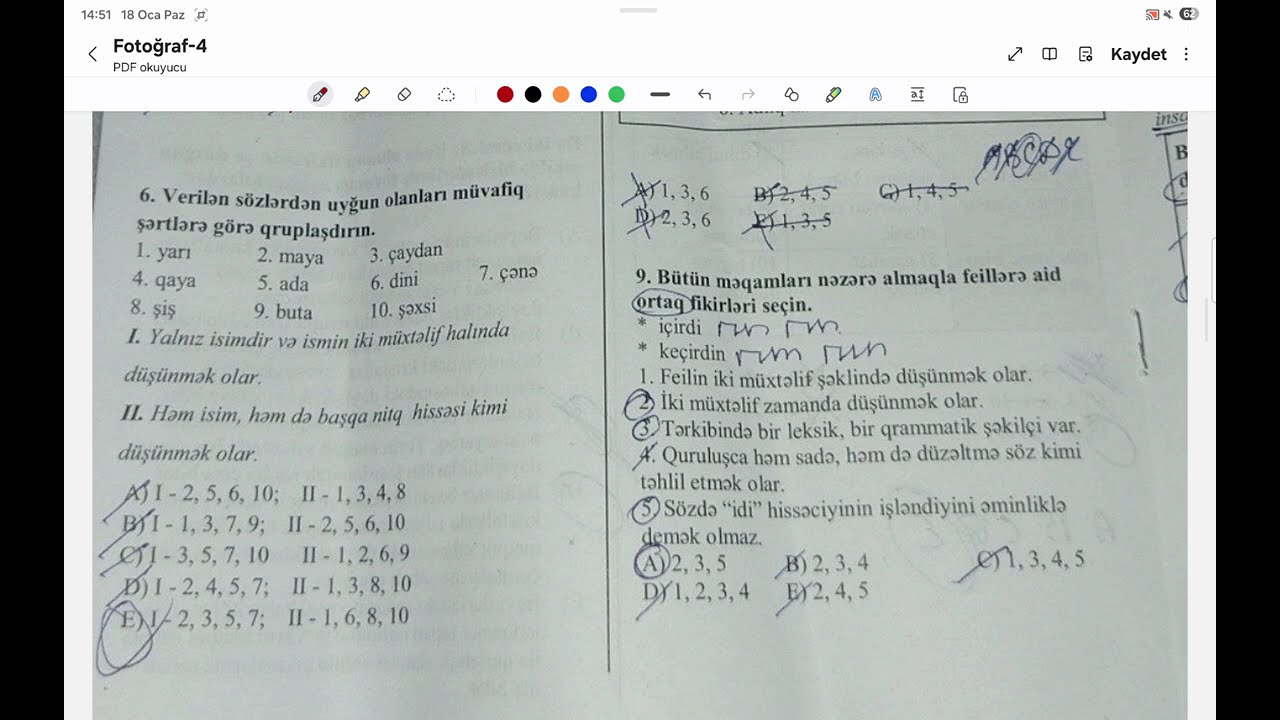 14:51 18 Oca Paz
62
Fotoğraf-4
PDF okuyucu
Kaydet
6. Verilən sözlərdən uyğun olanları müvafiq
şərtlərə görə qruplaşdırın.
1. yarı 2. maya 3. çaydan
4. qaya 5. ada 6. dini 7. çənə
8. şiş 9. buta 10. şəxsi
I. Yalnız isimdir və ismin iki müxtəlif halında
düşünmək olar.
II. Həm isim, həm də başqa nitq hissəsi kimi
düşünmək olar.
A) I - 2, 5, 6, 10; II - 1, 3, 4, 8
B) I - 1, 3, 7, 9; II - 2, 5, 6, 10
C) I - 3, 5, 7, 10 II - 1, 2, 6, 9
D) I - 2, 4, 5, 7; II - 1, 3, 8, 10
E) I - 2, 3, 5, 7; II - 1, 6, 8, 10
A) 1, 3, 6 B) 2, 4, 5 C) 1, 4, 5
D) 2, 3, 6 E) 1, 3, 5
9. Bütün məqamları nəzərə almaqla feillərə aid
ortaq fikirləri seçin.
* içirdi
* keçirdin
1. Feilin iki müxtəlif şəklində düşünmək olar.
2. İki müxtəlif zamanda düşünmək olar.
3. Tərkibində bir leksik, bir qrammatik şəkilçi var.
4. Quruluşca həm sadə, həm də düzəltmə söz kimi
təhlil etmək olar.
5. Sözdə “idi” hissəciyinin işləndiyini əminliklə
demək olmaz.
A) 2, 3, 5 B) 2, 3, 4 C) 1, 3, 4, 5
D) 1, 2, 3, 4 E) 2, 4, 5